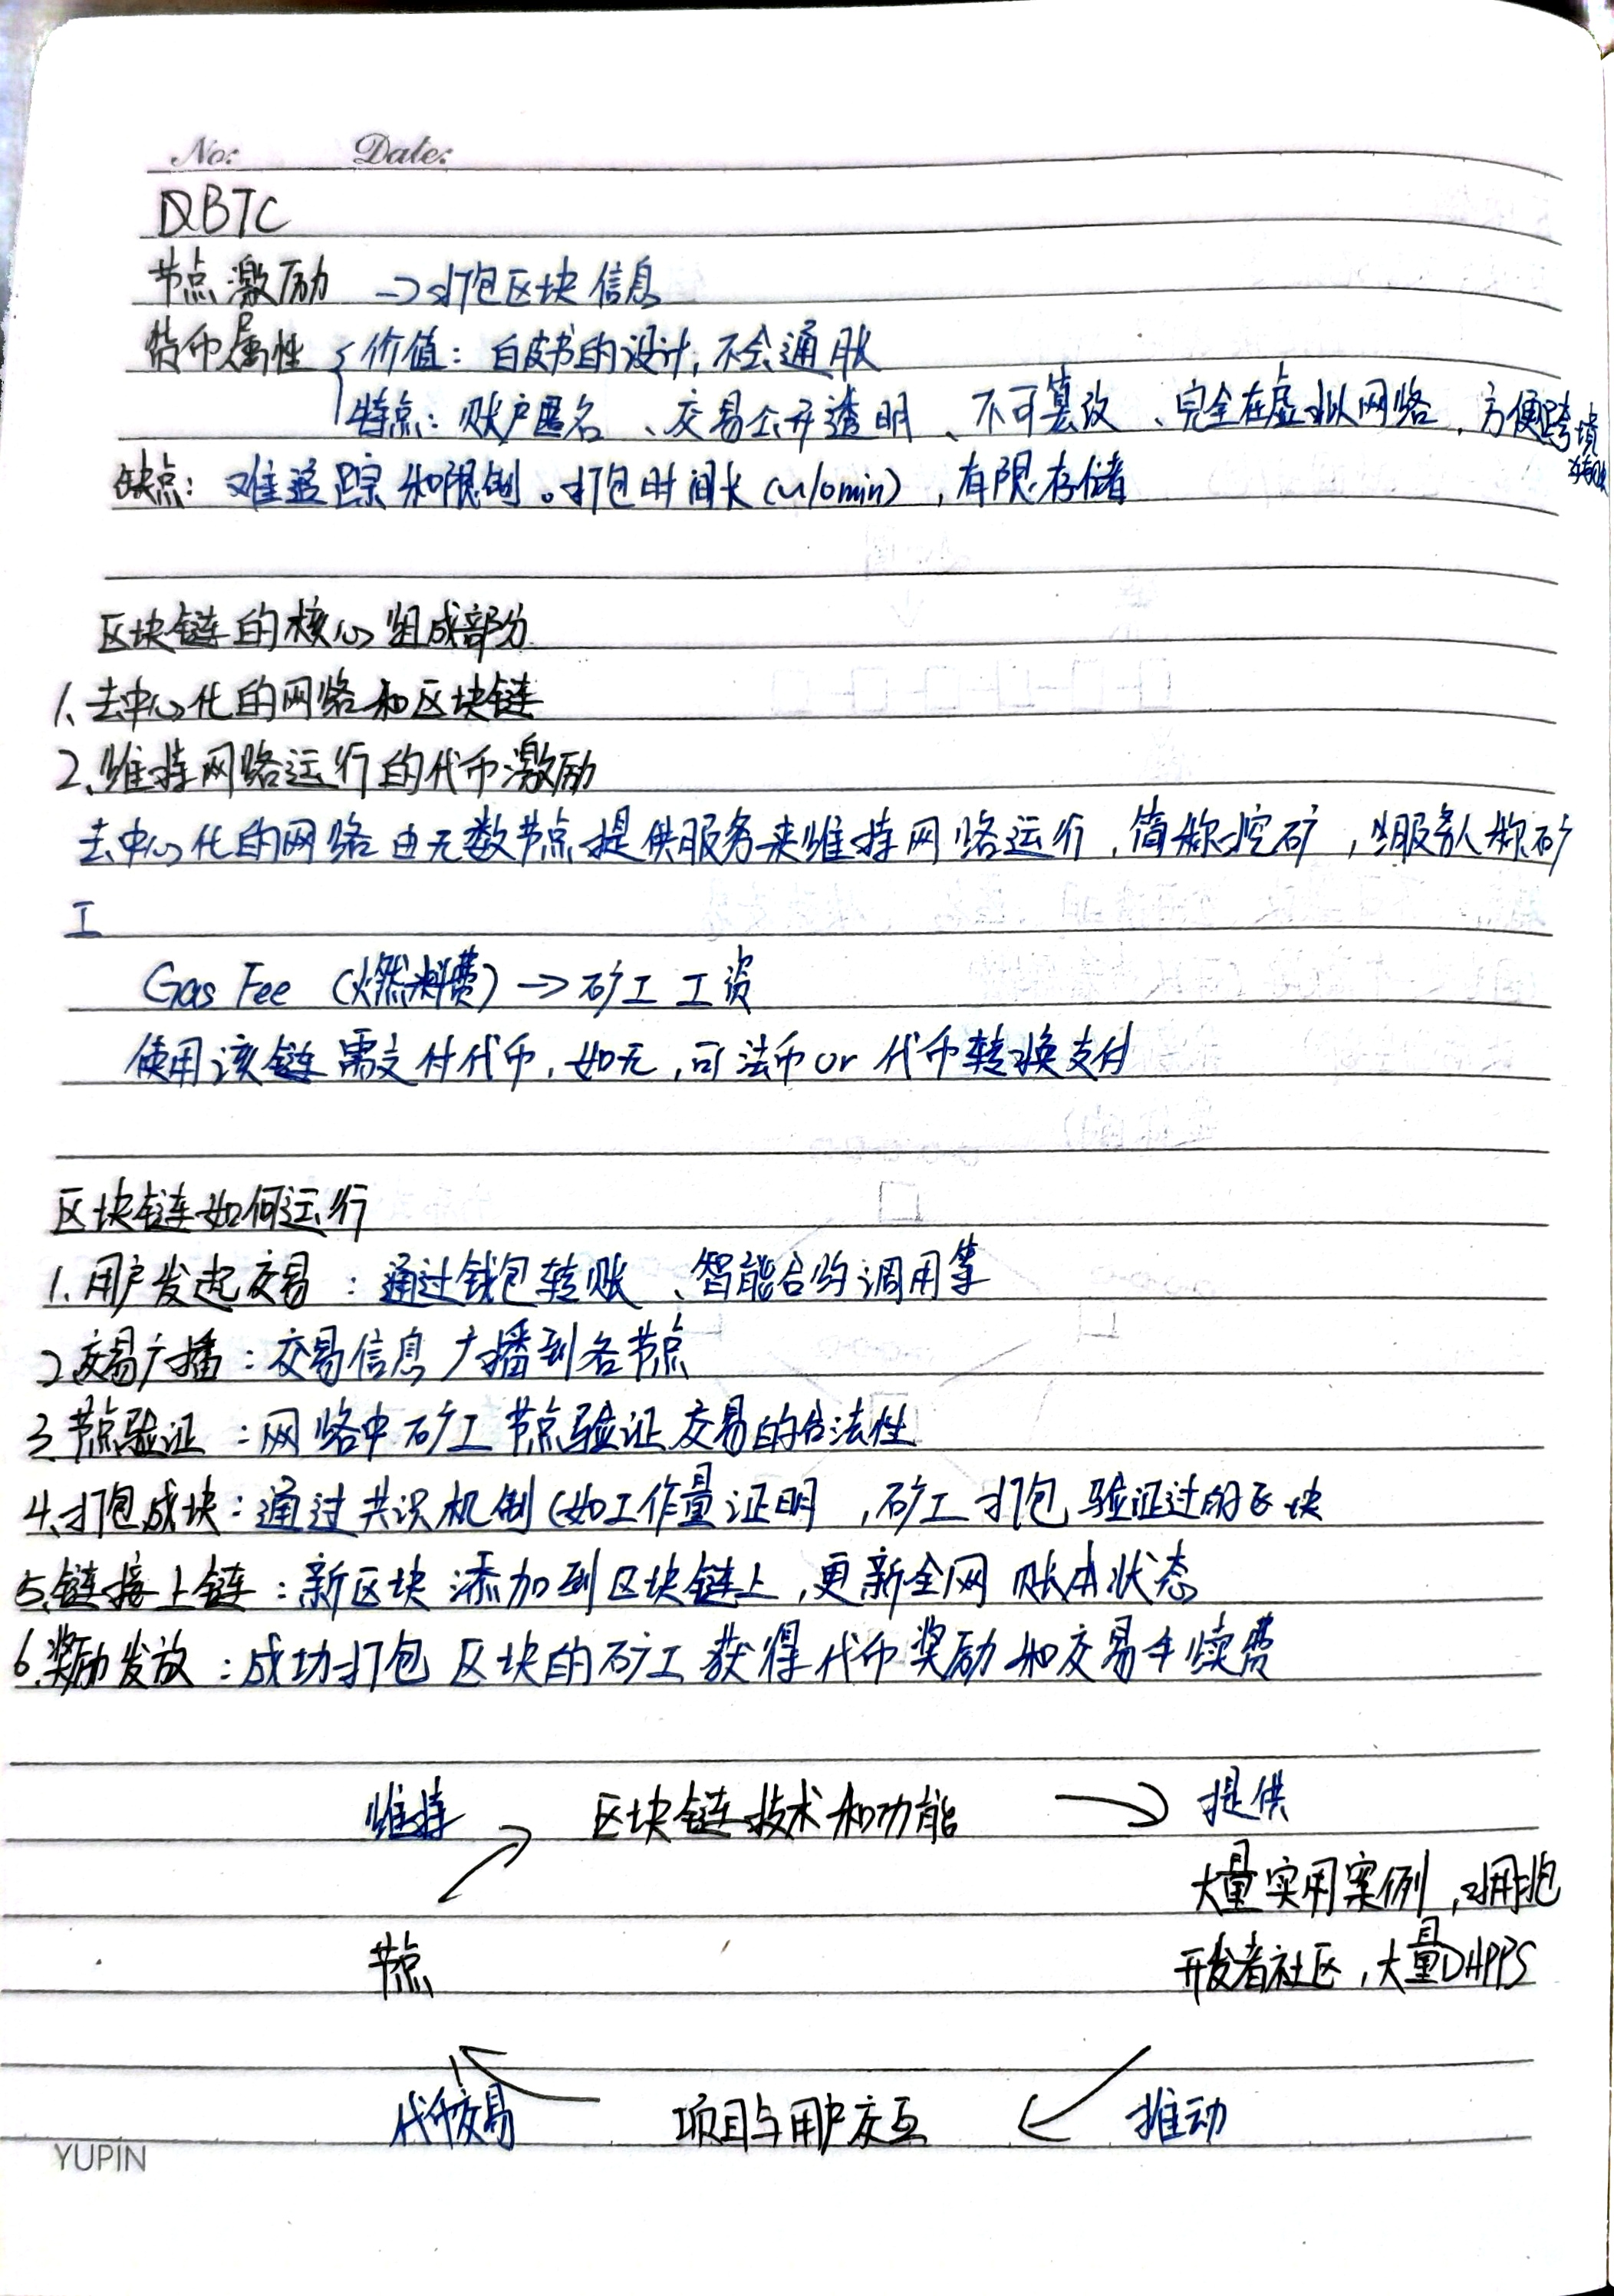 No: Date:
BTC
节点激励 →打包区块信息
货币属性 { 价值: 白皮书的设计, 不会通胀
特点: 账户匿名、交易公开透明、不可篡改、完全在虚拟网络, 方便跨境
转账
缺点: 难追踪和限制。打包时间长(~10min), 有限存储
区块链的核心组成部分
1、去中心化的网络和区块链
2、维持网络运行的代币激励
去中心化的网络由无数节点提供服务来维持网络运行, 简称挖矿, 服务人称矿
工
Gas Fee (燃料费) → 矿工工资
使用该链需支付代币, 如无, 可法币or代币转换支付
区块链如何运行
1. 用户发起交易: 通过钱包转账、智能合约调用等
2 交易广播: 交易信息广播到各节点
3. 节点验证: 网络中矿工节点验证交易的合法性
4、打包成块: 通过共识机制(如工作量证明, 矿工打包验证过的区块
5、链接上链: 新区块添加到区块链上, 更新全网账本状态
6. 奖励发放: 成功打包区块的矿工获得代币奖励和交易手续费
维持 区块链技术和功能 → 提供
大量实用案例, 拥抱
节点 开发者社区, 大量DAPPS
代币交易 项目与用户交互 推动
YUPIN